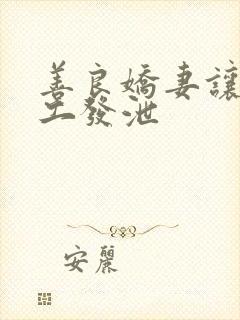 善良嬌妻讓
工發泄
安麗